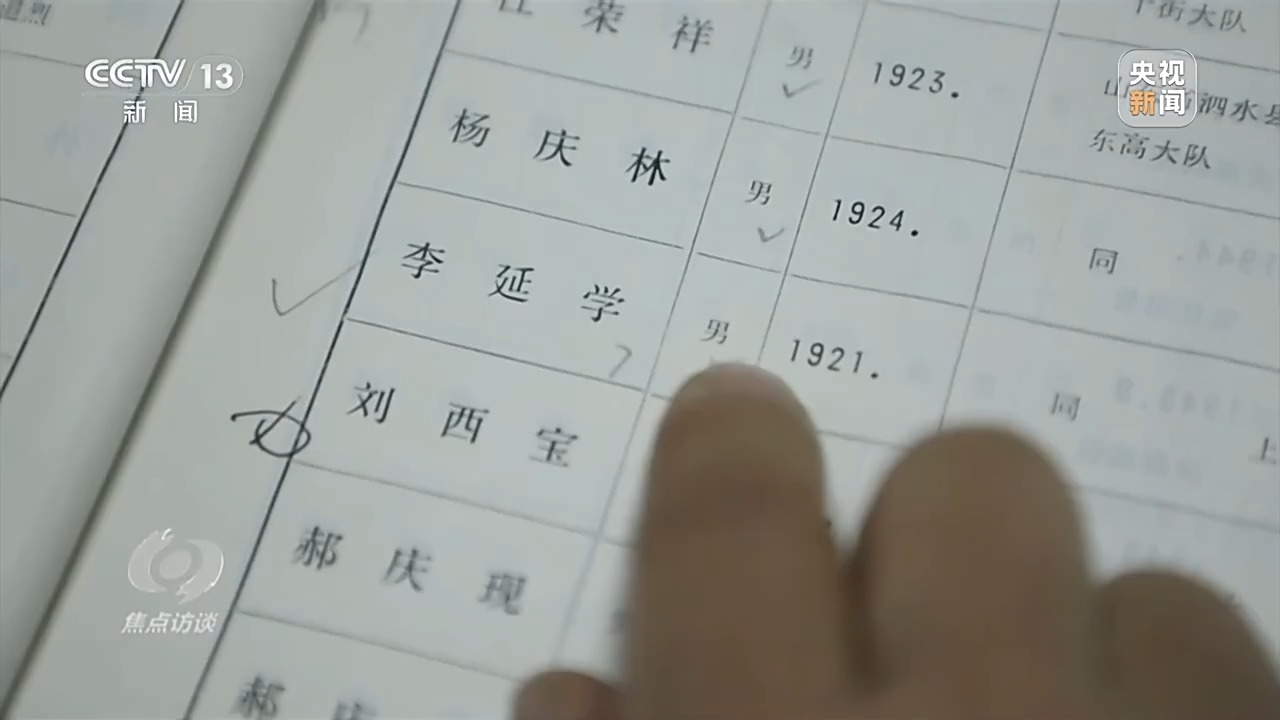 CCTV 13
新闻
央视
新闻
焦点访谈
荣祥 男 1923. 泗水县
东高大队
街大队
杨庆林 男 1924. 同
李延学 男 1921. 同 上
刘西宝
郝庆现
郝庆